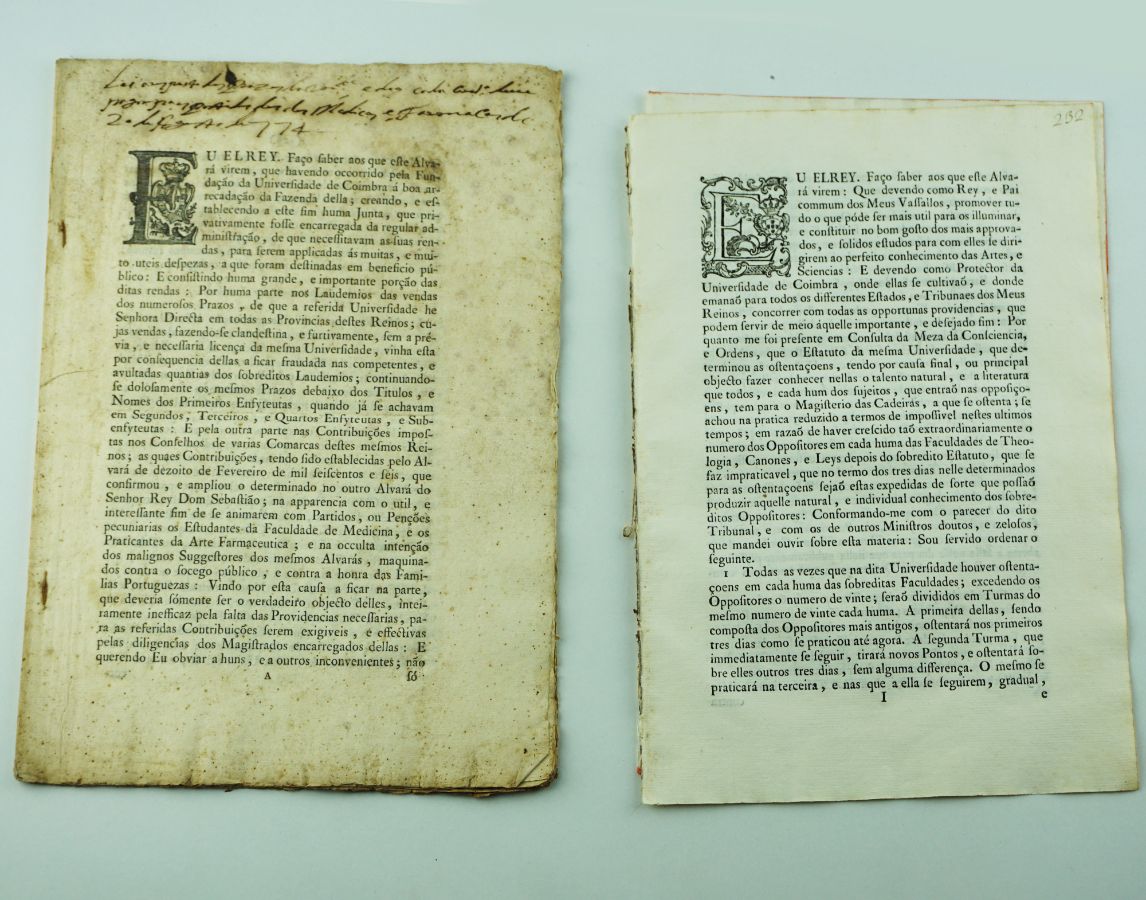 20 de Agosto de 774
EU ELREY. Faço ſaber aos que eſte Alva-
rá virem, que havendo occorrido pela Fun-
dação da Univerſidade de Coimbra á boa ar-
recadação da Fazenda della; creando, e eſ-
tablecendo a eſte fim huma Junta, que pri-
vativamente foſſe encarregada da regular ad-
miniſtração, de que neceſſitavam as ſuas ren-
das, para ſerem applicadas ás muitas, e mui-
to uteis deſpezas, a que foram deſtinadas em beneficio pú-
blico: E conſiſtindo huma grande, e importante porção das
ditas rendas: Por huma parte nos Laudemios das vendas
dos numeroſos Prazos, de que a referida Univerſidade he
Senhora Directa em todas as Provincias deſtes Reinos; cu-
jas vendas, fazendo-ſe clandeſtina, e furtivamente, ſem a pré-
via, e neceſſaria licença da meſma Univerſidade, vinha eſta
por conſequencia dellas a ficar fraudada nas competentes, e
avultadas quantias dos ſobreditos Laudemios; continuando-
ſe doloſamente os meſmos Prazos debaixo dos Titulos, e
Nomes dos Primeiros Enfyteutas, quando já ſe achavam
em Segundos, Terceiros, e Quartos Enfyteutas, e Sub-
enfyteutas: E pela outra parte nas Contribuições impoſ-
tas nos Conſelhos de varias Comarcas deſtes meſmos Rei-
nos; as quaes Contribuições, tendo ſido eſtablecidas pelo Al-
vará de dezoito de Fevereiro de mil ſeiſcentos e ſeis, que
confirmou, e ampliou o determinado no outro Alvará do
Senhor Rey Dom Sebaſtião; na apparencia com o util, e
intereſſante fim de ſe animarem com Partidos, ou Penções
pecuniarias os Eſtudantes da Faculdade de Medicina, e os
Praticantes da Arte Farmaceutica; e na occulta intenção
dos malignos Suggeſtores dos meſmos Alvarás, maquina-
dos contra o ſocego público, e contra a honra das Fami-
lias Portuguezas: Vindo por eſta cauſa a ficar na parte,
que deveria ſómente ſer o verdadeiro objecto delles, intei-
ramente inefficaz pela falta das Providencias neceſſarias, pa-
ra as referidas Contribuições ſerem exigiveis, e effectivas
pelas diligencias dos Magiſtrados encarregados dellas: E
querendo Eu obviar a huns, e a outros inconvenientes; não
A ſó
232
EU ELREY. Faço ſaber aos que eſte Alva-
rá virem: Que devendo como Rey, e Pai
commum dos Meus Vaſſallos, promover tu-
do o que póde ſer mais util para os illuminar,
e conſtituir no bom goſto dos mais approva-
dos, e ſolidos eſtudos para com elles ſe diri-
girem ao perfeito conhecimento das Artes, e
Sciencias: E devendo como Protector da
Univerſidade de Coimbra, onde ellas ſe cultivaõ, e donde
emanaõ para todos os differentes Eſtados, e Tribunaes dos Meus
Reinos, concorrer com todas as opportunas providencias, que
podem ſervir de meio áquelle importante, e deſejado fim: Por
quanto me foi preſente em Conſulta da Meza da Conſciencia,
e Ordens, que o Eſtatuto da meſma Univerſidade, que de-
terminou as oſtentaçoens, tendo por cauſa final, ou principal
objecto fazer conhecer nellas o talento natural, e a literatura
que todos, e cada hum dos ſujeitos, que entraõ nas oppoſiço-
ens, tem para o Magiſterio das Cadeirás, a que ſe oſtenta; ſe
achou na pratica reduzido a termos de impoſſivel neſtes ultimos
tempos; em razaõ de haver creſcido taõ extraordinariamente o
numero dos Oppoſitores em cada huma das Faculdades de Theo-
logia, Canones, e Leys depois do ſobredito Eſtatuto, que ſe
faz impraticavel, que no termo dos tres dias nelle determinados
para as oſtentaçoens ſejaõ eſtas expedidas de ſorte que poſſaõ
produzir aquelle natural, e individual conhecimento dos ſobre-
ditos Oppoſitores: Conformando-me com o parecer do dito
Tribunal, e com os de outros Miniſtros doutos, e zeloſos,
que mandei ouvir ſobre eſta materia: Sou ſervido ordenar o
ſeguinte.
1 Todas as vezes que na dita Univerſidade houver oſtenta-
çoens em cada huma das ſobreditas Faculdades; excedendo os
Oppoſitores o numero de vinte; ſeraõ divididos em Turmas do
meſmo numero de vinte cada huma. A primeira dellas, ſendo
compoſta dos Oppoſitores mais antigos, oſtentará nos primeiros
tres dias como ſe praticou até agora. A ſegunda Turma, que
immediatamente ſe ſeguir, tirará novos Pontos, e oſtentará ſo-
bre elles outros tres dias, ſem alguma differença. O meſmo ſe
praticará na terceira, e nas que a ella ſe ſeguirem, gradual,
I e